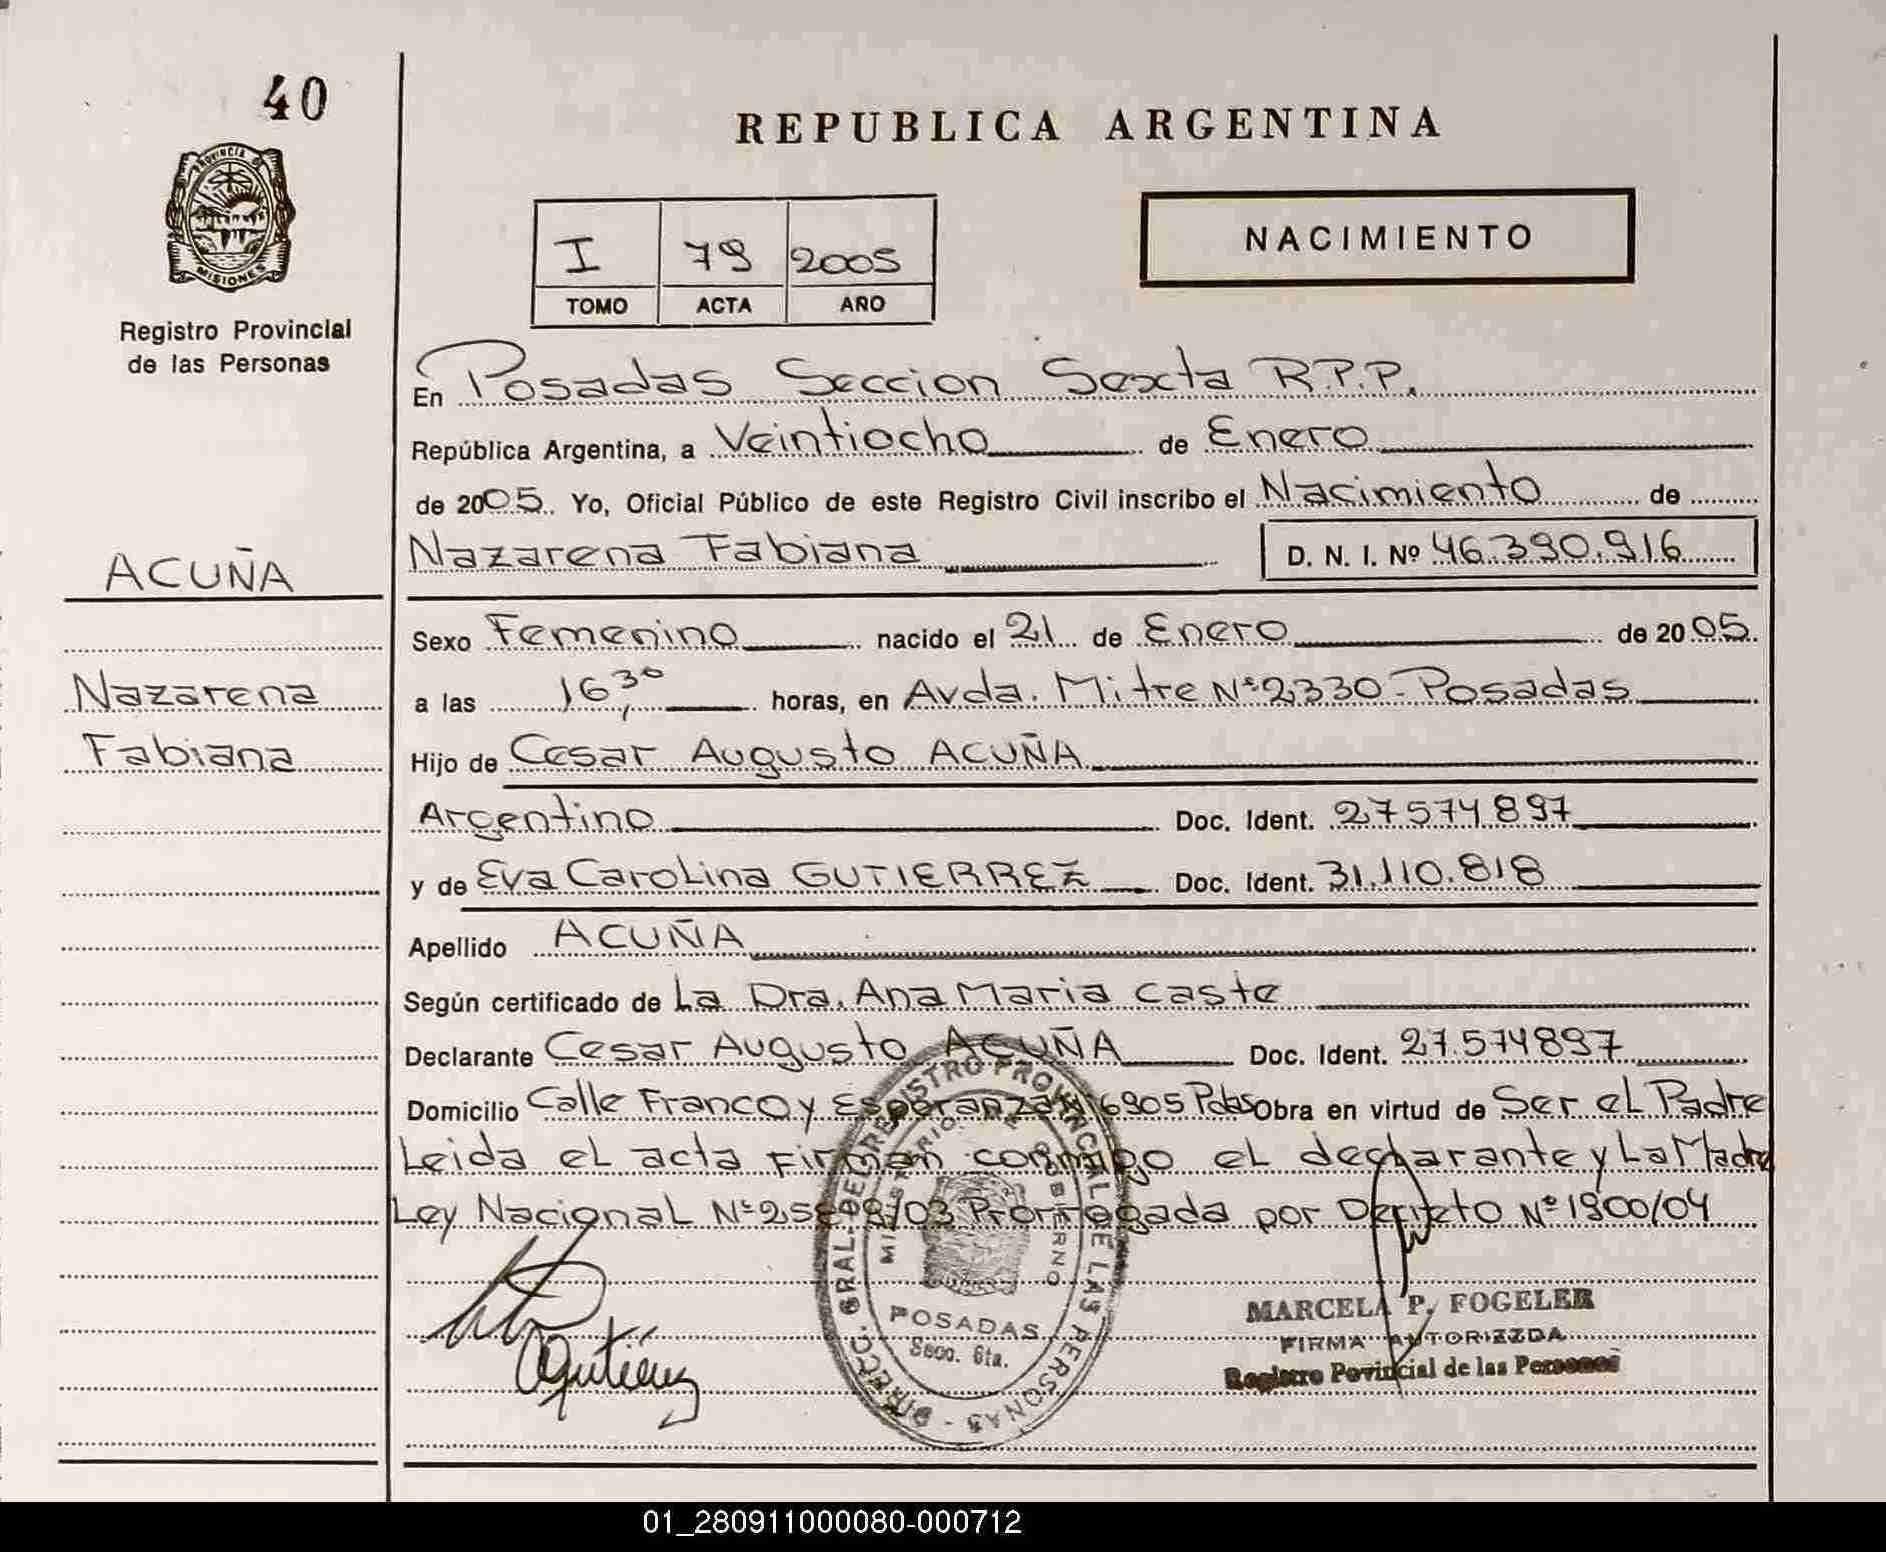 40
PROVINCIA DE
MISIONES
Registro Provincial
de las Personas
REPUBLICA ARGENTINA
I 79 2005
TOMO ACTA AÑO
NACIMIENTO
En Posadas Seccion Sexta R.P.P.
República Argentina, a Veintiocho de Enero
de 2005. Yo, Oficial Público de este Registro Civil inscribo el Nacimiento de
Nazarena Fabiana D. N. I. Nº 46.390.916
ACUÑA
Sexo Femenino nacido el 21 de Enero de 2005.
Nazarena
a las 16,30 horas, en Avda. Mitre Nº 2330 - Posadas
Fabiana
Hijo de Cesar Augusto ACUÑA
Argentino Doc. Ident. 27.574.897
y de Eva Carolina GUTIERREZ Doc. Ident. 31.110.818
Apellido ACUÑA
Según certificado de La Dra. Ana Maria Caste
Declarante Cesar Augusto ACUÑA Doc. Ident. 27.574897
Domicilio Calle Franco y Esperanza 6905 Pdas Obra en virtud de Ser el Padre
Leida el acta Firman conmigo el declarante y La Madre
Ley Nacional Nº /03 Prorrogada por Decreto Nº 1900/04
DIRECC. GRAL. DEL REGISTRO PROVINCIAL DE LAS PERSONAS
MINISTERIO DE GOBIERNO
POSADAS
Secc. 6ta.
Cgutiérrez
MARCELA P. FOGELER
FIRMA AUTORIZZDA
Registro Povincial de las Personas
01_280911000080-000712